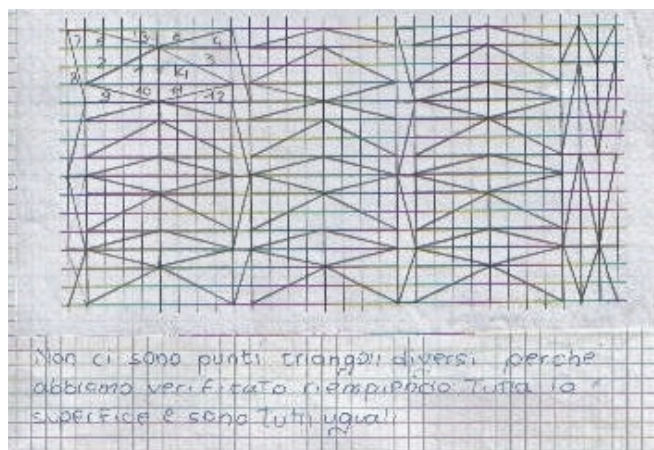 Non ci sono punti triangoli diversi perche
abbiamo verificato riempiendo Tutta la
superfice e sono Tutti uguali